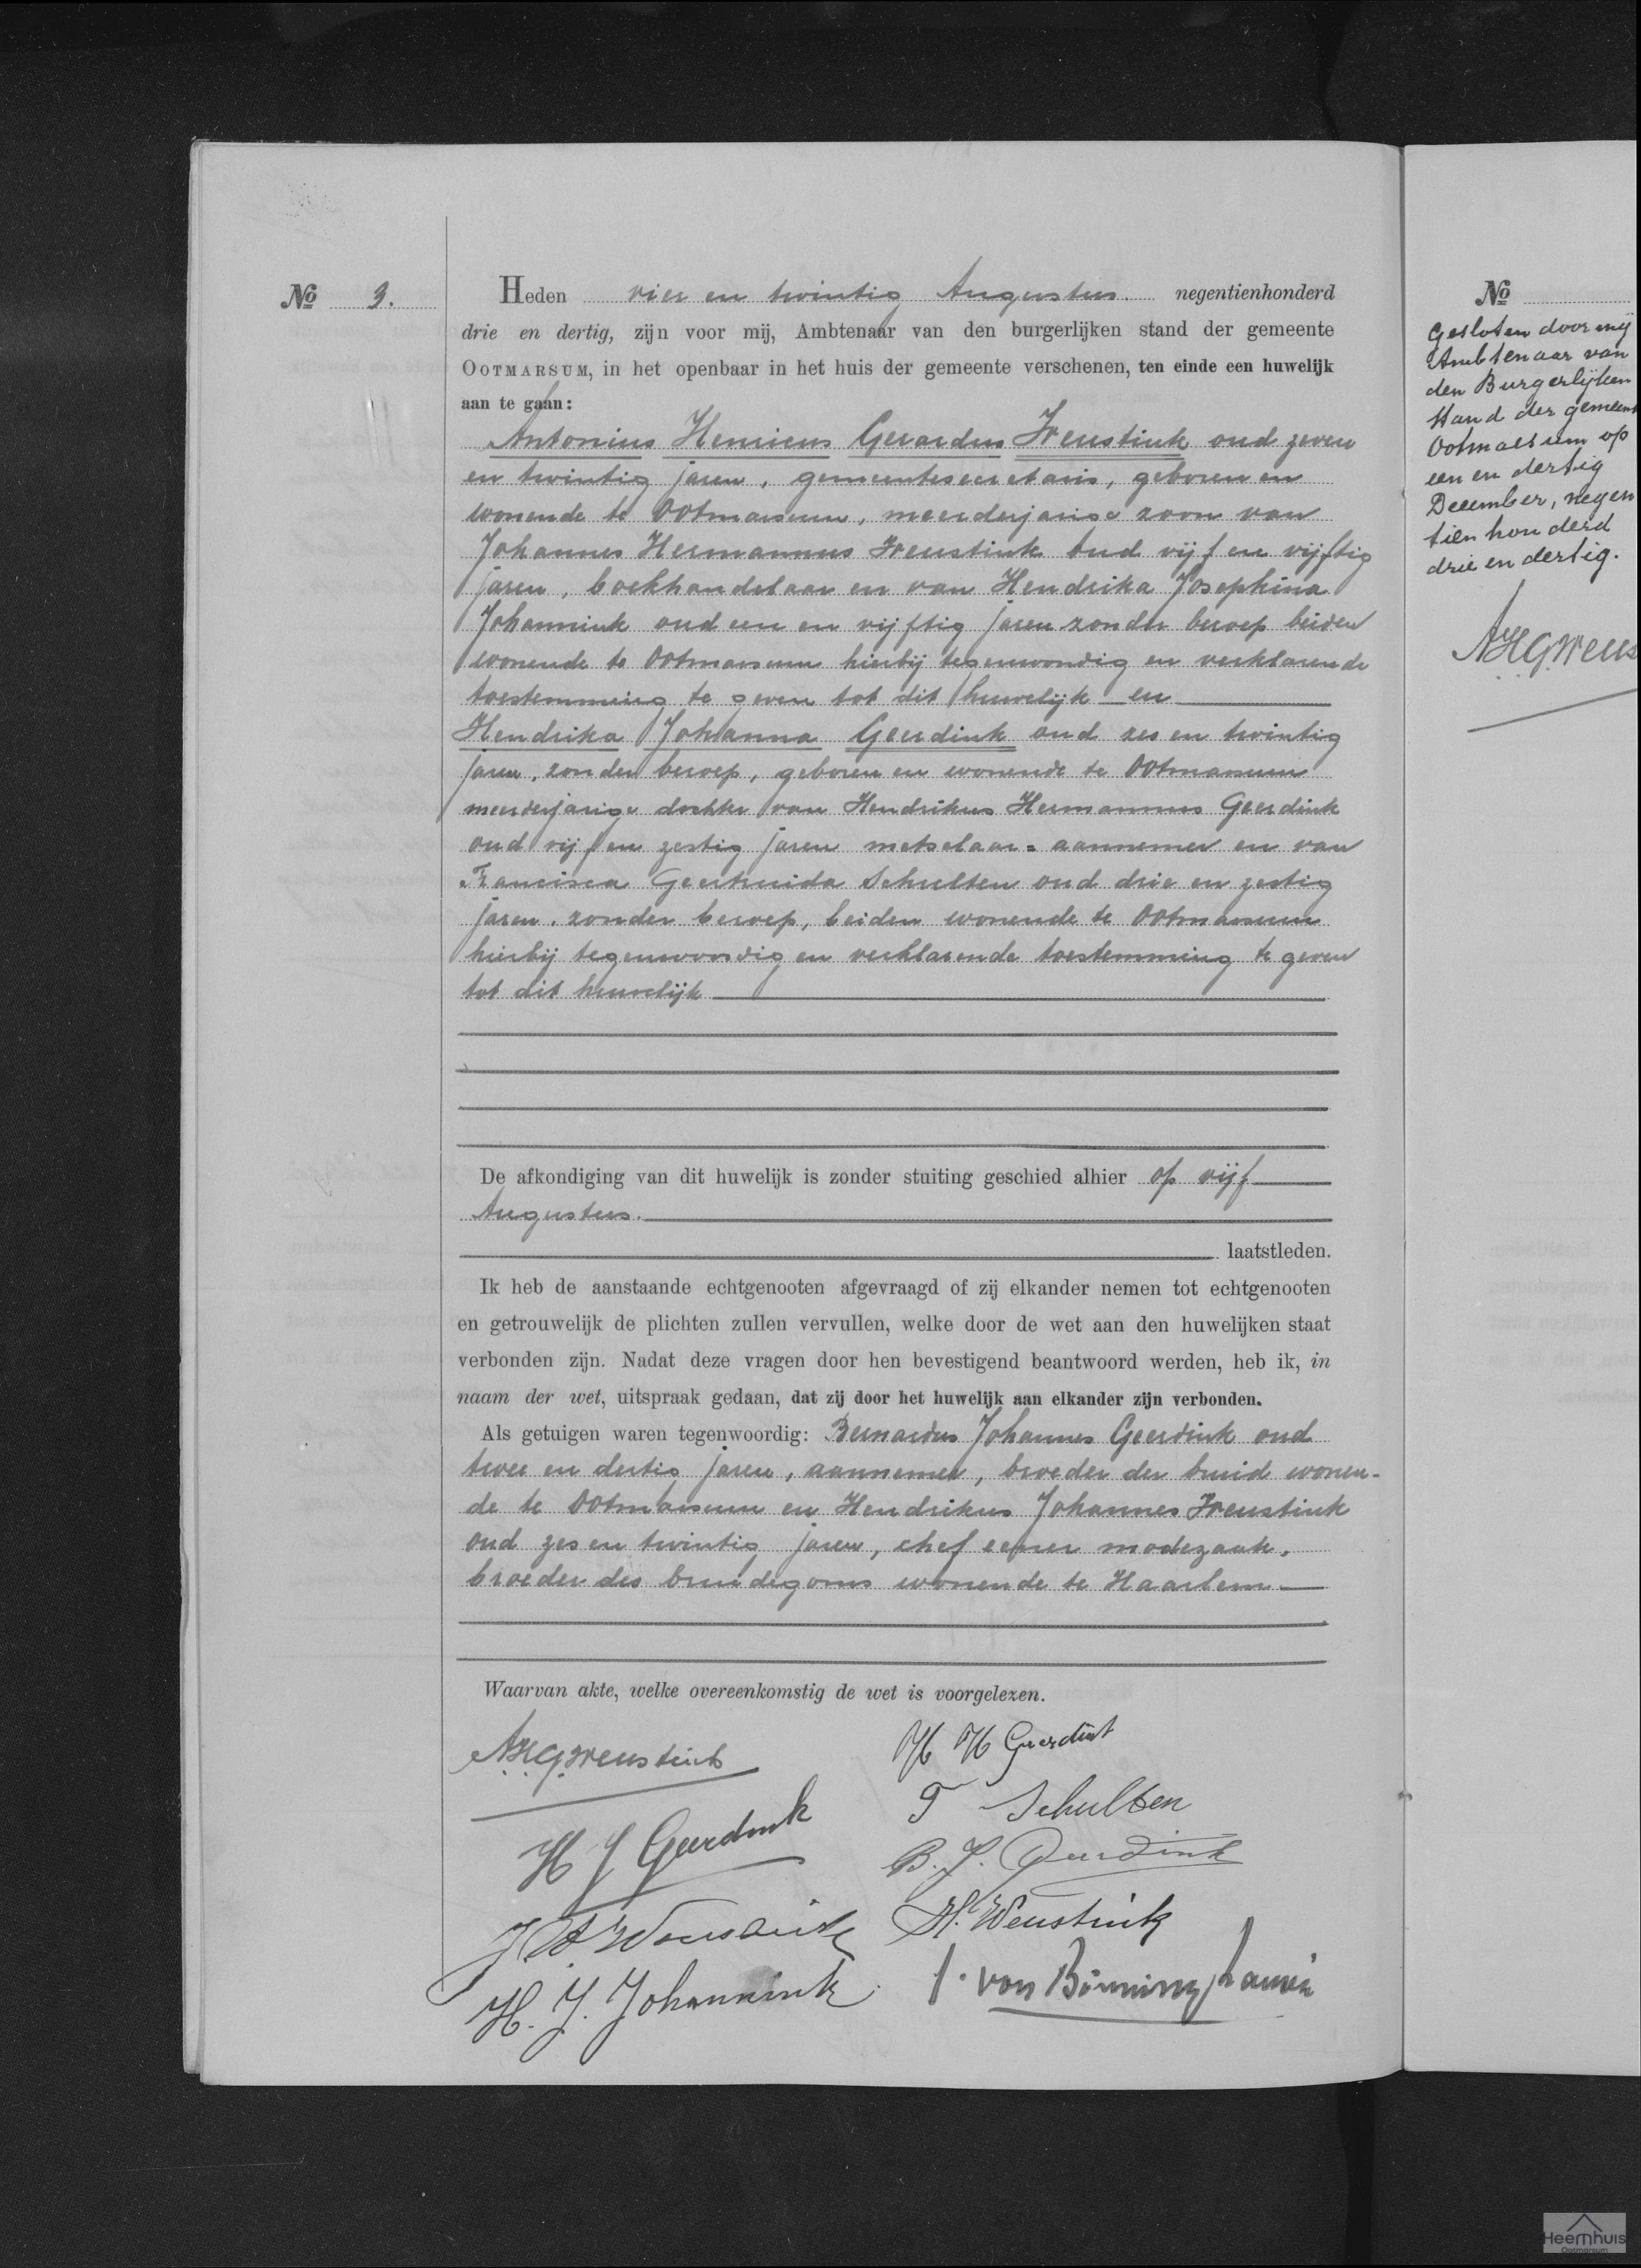 No 3.
Heden vier en twintig Augustus. negentienhonderd
drie en dertig, zijn voor mij, Ambtenaar van den burgerlijken stand der gemeente
OOTMARSUM, in het openbaar in het huis der gemeente verschenen, ten einde een huwelijk
aan te gaan:
Antonius Henricus Gerardus Weustink oud zeven
en twintig jaren, gemeentesecretaris, geboren en
wonende te Ootmarsum, meerderjarige zoon van
Johannes Hermannus Weustink oud vijf en vijftig
jaren, boekhandelaar en van Hendrika Josephina
Johannink oud een en vijftig jaren zonder beroep beiden
wonende te Ootmarsum hierbij tegenwoordig en verklarende
toestemming te geven tot dit huwelijk en
Hendrika Johanna Geerdink oud zes en twintig
jaren, zonder beroep, geboren en wonende te Ootmarsum
meerderjarige dochter van Hendrikus Hermannus Geerdink
oud vijf en zestig jaren metselaar=aannemer en van
Francisca Geertruida Schulten oud drie en zestig
jaren, zonder beroep, beiden wonende te Ootmarsum
hierbij tegenwoordig en verklarende toestemming te geven
tot dit huwelijk
De afkondiging van dit huwelijk is zonder stuiting geschied alhier op vijf
Augustus.
laatstleden.
Ik heb de aanstaande echtgenooten afgevraagd of zij elkander nemen tot echtgenooten
en getrouwelijk de plichten zullen vervullen, welke door de wet aan den huwelijken staat
verbonden zijn. Nadat deze vragen door hen bevestigend beantwoord werden, heb ik, in
naam der wet, uitspraak gedaan, dat zij door het huwelijk aan elkander zijn verbonden.
Als getuigen waren tegenwoordig: Bernardus Johannes Geerdink oud
twee en dertig jaren, aannemer, broeder der bruid wonen-
de te Ootmarsum en Hendrikus Johannes Weustink
oud zes en twintig jaren, chef eener modezaak,
broeder des bruidegoms wonende te Haarlem
Waarvan akte, welke overeenkomstig de wet is voorgelezen.
AHGWeustink
H J Geerdink
J H Weustink
H. J. Johannink
H H Geerdink
F Schulten
B. J. Geerdink
H. Weustink
von Bönninghausen
No
Gesloten door mij
Ambtenaar van
den Burgerlijken
Stand der gemeent
Ootmarsum op
een en dertig
December, negen
tien honderd
drie en dertig.
AHGWeus
Heemhuis
Ootmarsum